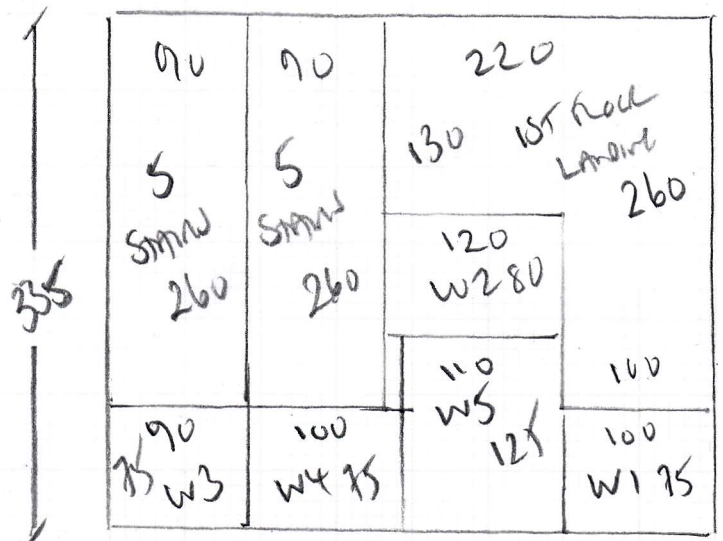 90
5
STAIRS
260
90
5
STAIRS
260
220
130
1ST FLOOR
LANDING
260
120
W2 80
335
110
W5
125
100
90
75 W3
100
W4 75
100
W1 75